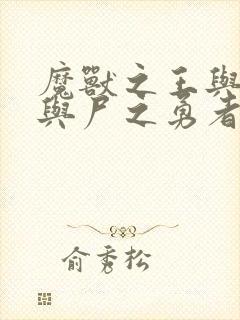 魔獸之王與
與尸之勇者
俞秀松